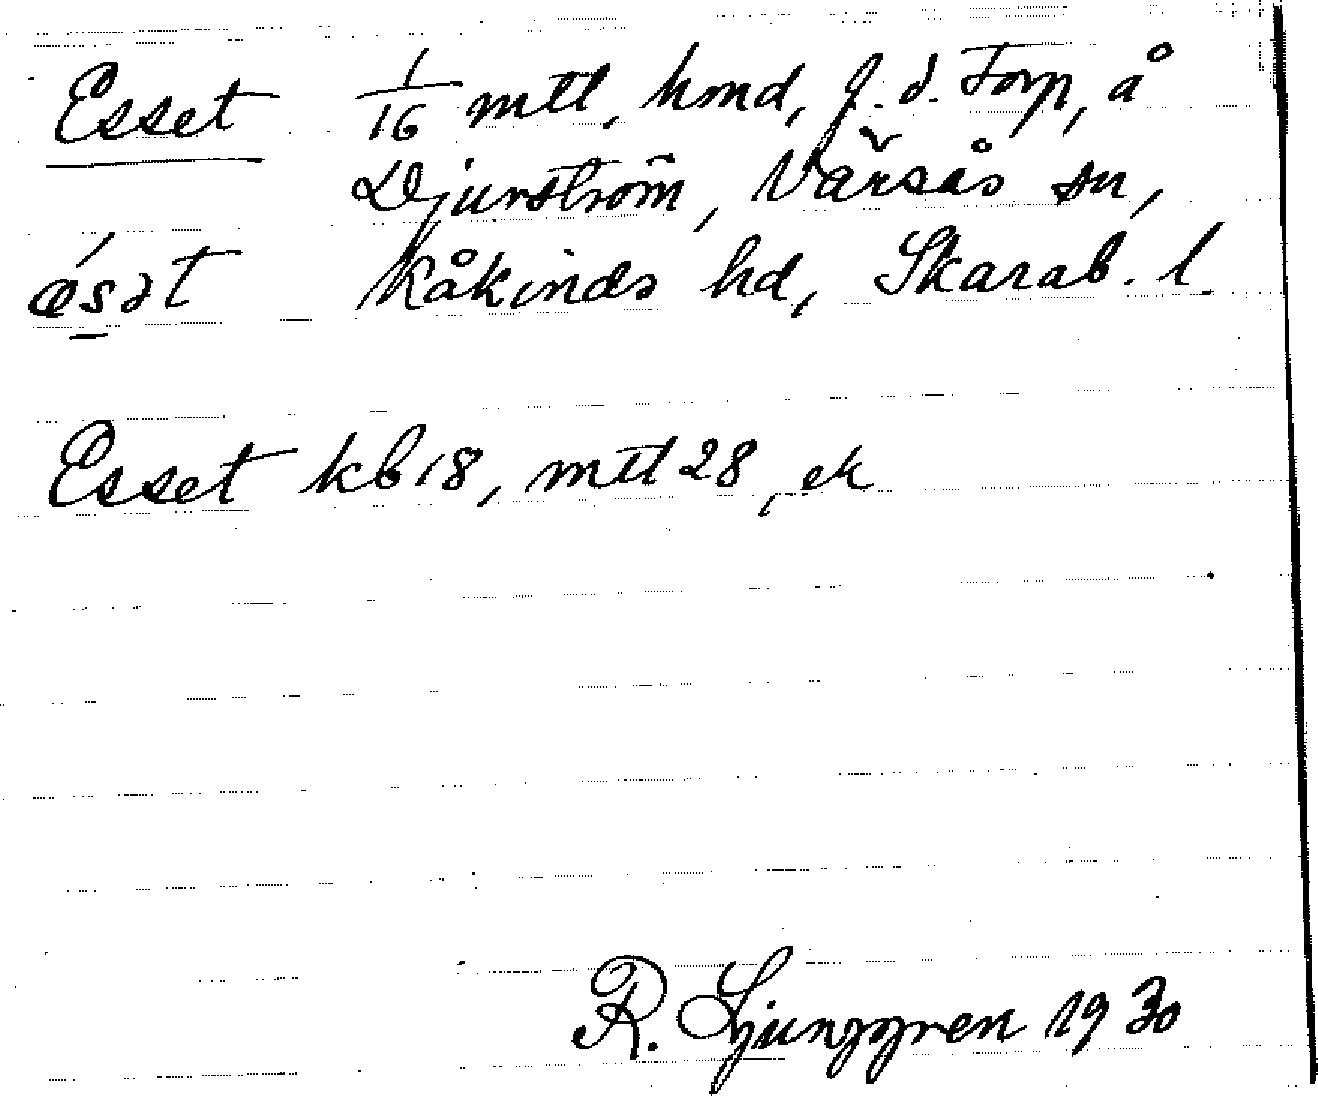 Esset 1/16 mtl, hmd, f.d. Torp, å
Djurström, Värsås sn,
ésət Kåkinds hd, Skarab. l.
Esset kb 18, mtl 28, ek
R. Ljunggren 1930